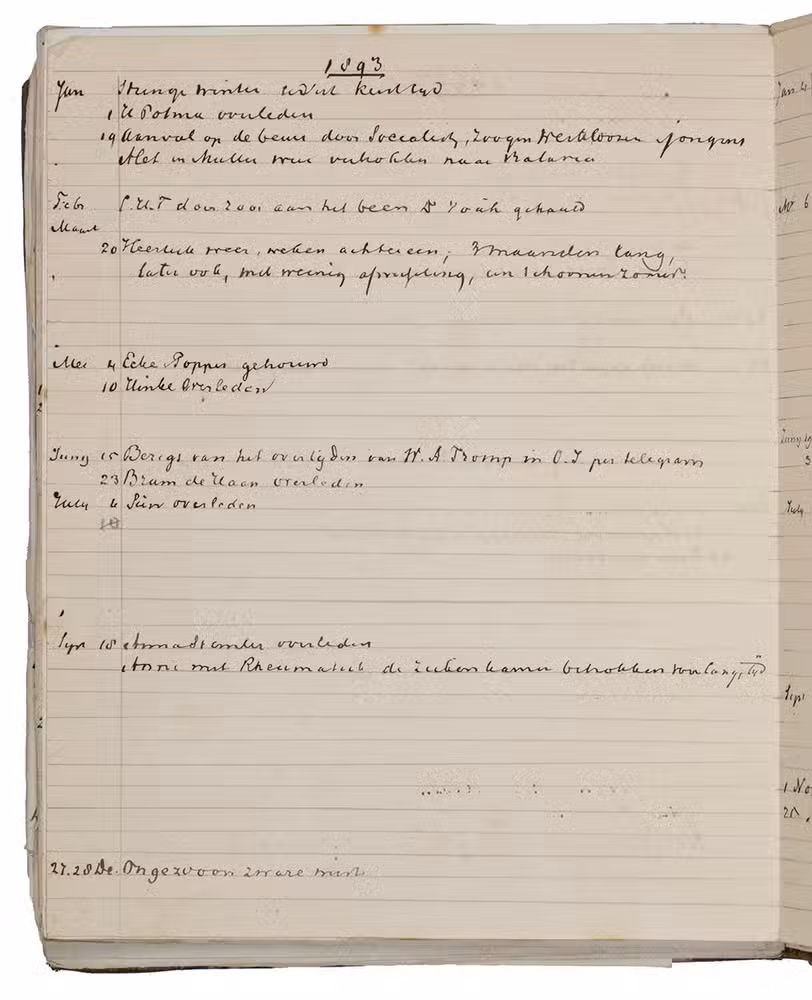 1893
Jan Strenge winter sedert kersttijd
1 U Potma overleden
19 Aanval op de beurs door Socialisten, zoogen Werkloozen & jongens
Alet en Muller weer vertrokken naar Batavia
Feb door roos aan het been
Maart
20 Heerlijk weer, weken achtereen, 3 maanden lang,
later ook, met weinig afwisseling, een schoonen zomer.
Mei 4 Ecke Poppes getrouwd
10 Hinke Overleden
Juny 15 Berigt van het overlijden van W. A. Tromp in O.I per telegram
23 Bram de Haan overleden
July 6 overleden
Sept 18 overleden
met Rheumatiek de ziekenkamer betrokken voor lang tijd
27.28 De. Ongewoon zware mist
Jan 4
6
Juny 19
3
July
Sept
1 No
20